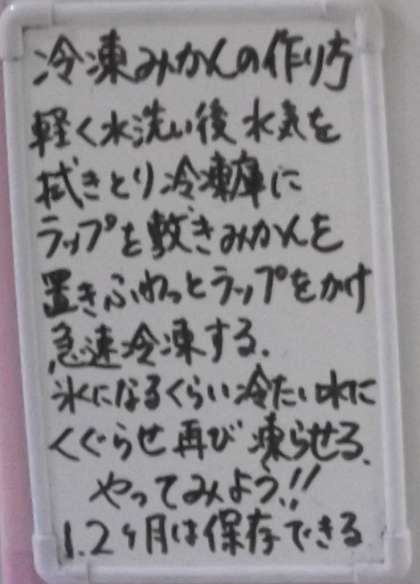 冷凍みかんの作り方
軽く水洗い後水気を
拭きとり冷凍庫に
ラップを敷きみかんを
置きふわっとラップをかけ
急速冷凍する.
氷になるくらい冷たい水に
くぐらせ再び凍らせる.
やってみよう!!
1.2ヶ月は保存できる